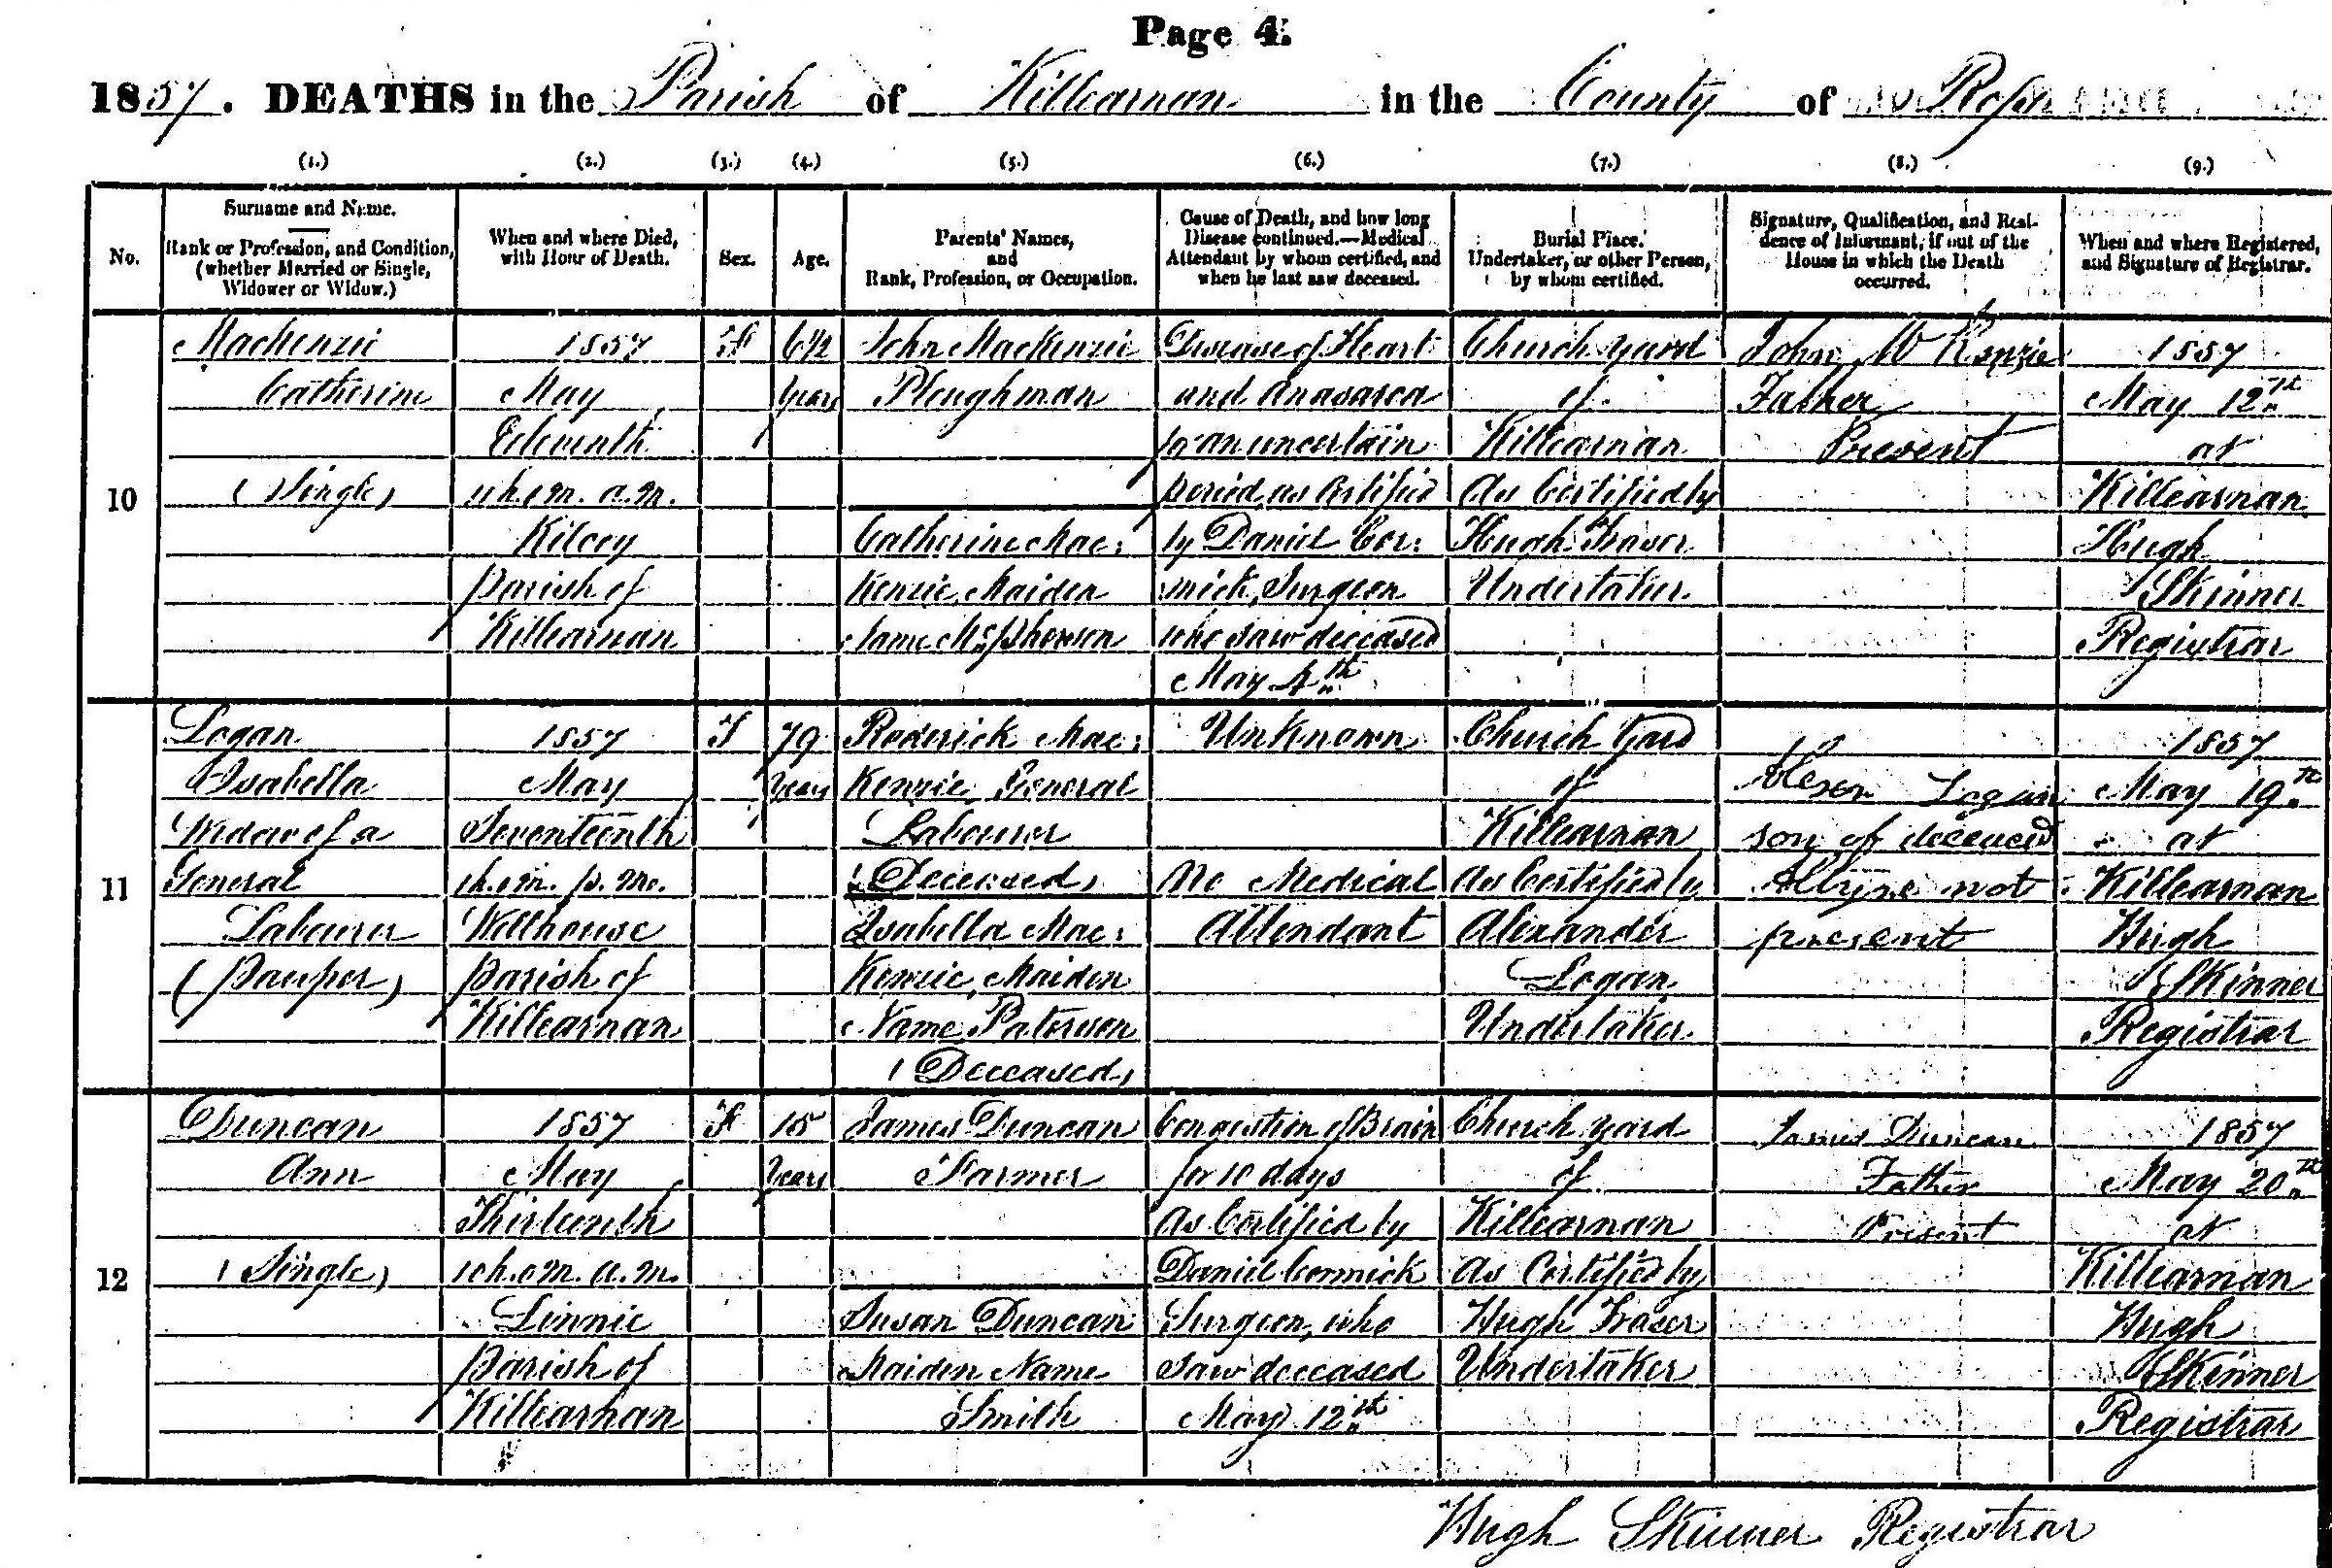 Page 4.
1857. DEATHS in the Parish of Killearnan in the County of Ross
(1.) (2.) (3.) (4.) (5.) (6.) (7.) (8.) (9.)
No.
Surname and Name.
Rank or Profession, and Condition,
(whether Married or Single,
Widower or Widow.)
When and where Died,
with Hour of Death.
Sex.
Age.
Parents' Names,
and
Rank, Profession, or Occupation.
Cause of Death, and how long
Disease continued.—Medical
Attendant by whom certified, and
when he last saw deceased.
Burial Place.
Undertaker, or other Person,
by whom certified.
Signature, Qualification, and Resi-
dence of Informant, if out of the
House in which the Death
occurred.
When and where Registered,
and Signature of Registrar.
10
Mackenzie
Catherine
(Single)
1857
May
Eleventh
h. m. a.m.
Kilcoy
Parish of
Killearnan
F
6½
years
John MacKenzie
Ploughman
Catherine Mac:
Kenzie, Maiden
Name McPherson
Disease of Heart
and Anasarca
for an uncertain
period, as Certified
by Daniel Cor:
mick, Surgeon
who saw deceased
May 4th
Church yard
of
Killearnan
As Certified by
Hugh Fraser
Undertaker
John McKenzie
Father
Present
1857
May 12th
at
Killearnan
Hugh
Skinner
Registrar
11
Logan
Isabella
Widow of a
General
Labourer
(Pauper)
1857
May
Seventeenth
h. m. p. m.
Wellhouse
Parish of
Killearnan
F
79
years
Roderick Mac:
Kenzie, General
Labourer
(Deceased)
Isabella Mac:
Kenzie, Maiden
Name Paterson
(Deceased)
Unknown
No Medical
Attendant
Church Yard
of
Killearnan
As Certified by
Alexander
Logan
Undertaker
Logan
son of deceased
not
present
1857
May 19th
at
Killearnan
Hugh
Skinner
Registrar
12
Duncan
Ann
(Single)
1857
May
Thirteenth
h. m. a.m.
Linnie
Parish of
Killearnan
F
15
Years
James Duncan
Farmer
Susan Duncan
Maiden Name
Smith
Congestion of Brain
for 10 days
As Certified by
Daniel Cormick
Surgeon, who
saw deceased
May 12th
Church yard
of
Killearnan
As Certified by
Hugh Fraser
Undertaker
James Duncan
Father
Present
1857
May 20th
at
Killearnan
Hugh
Skinner
Registrar
Hugh Skinner Registrar